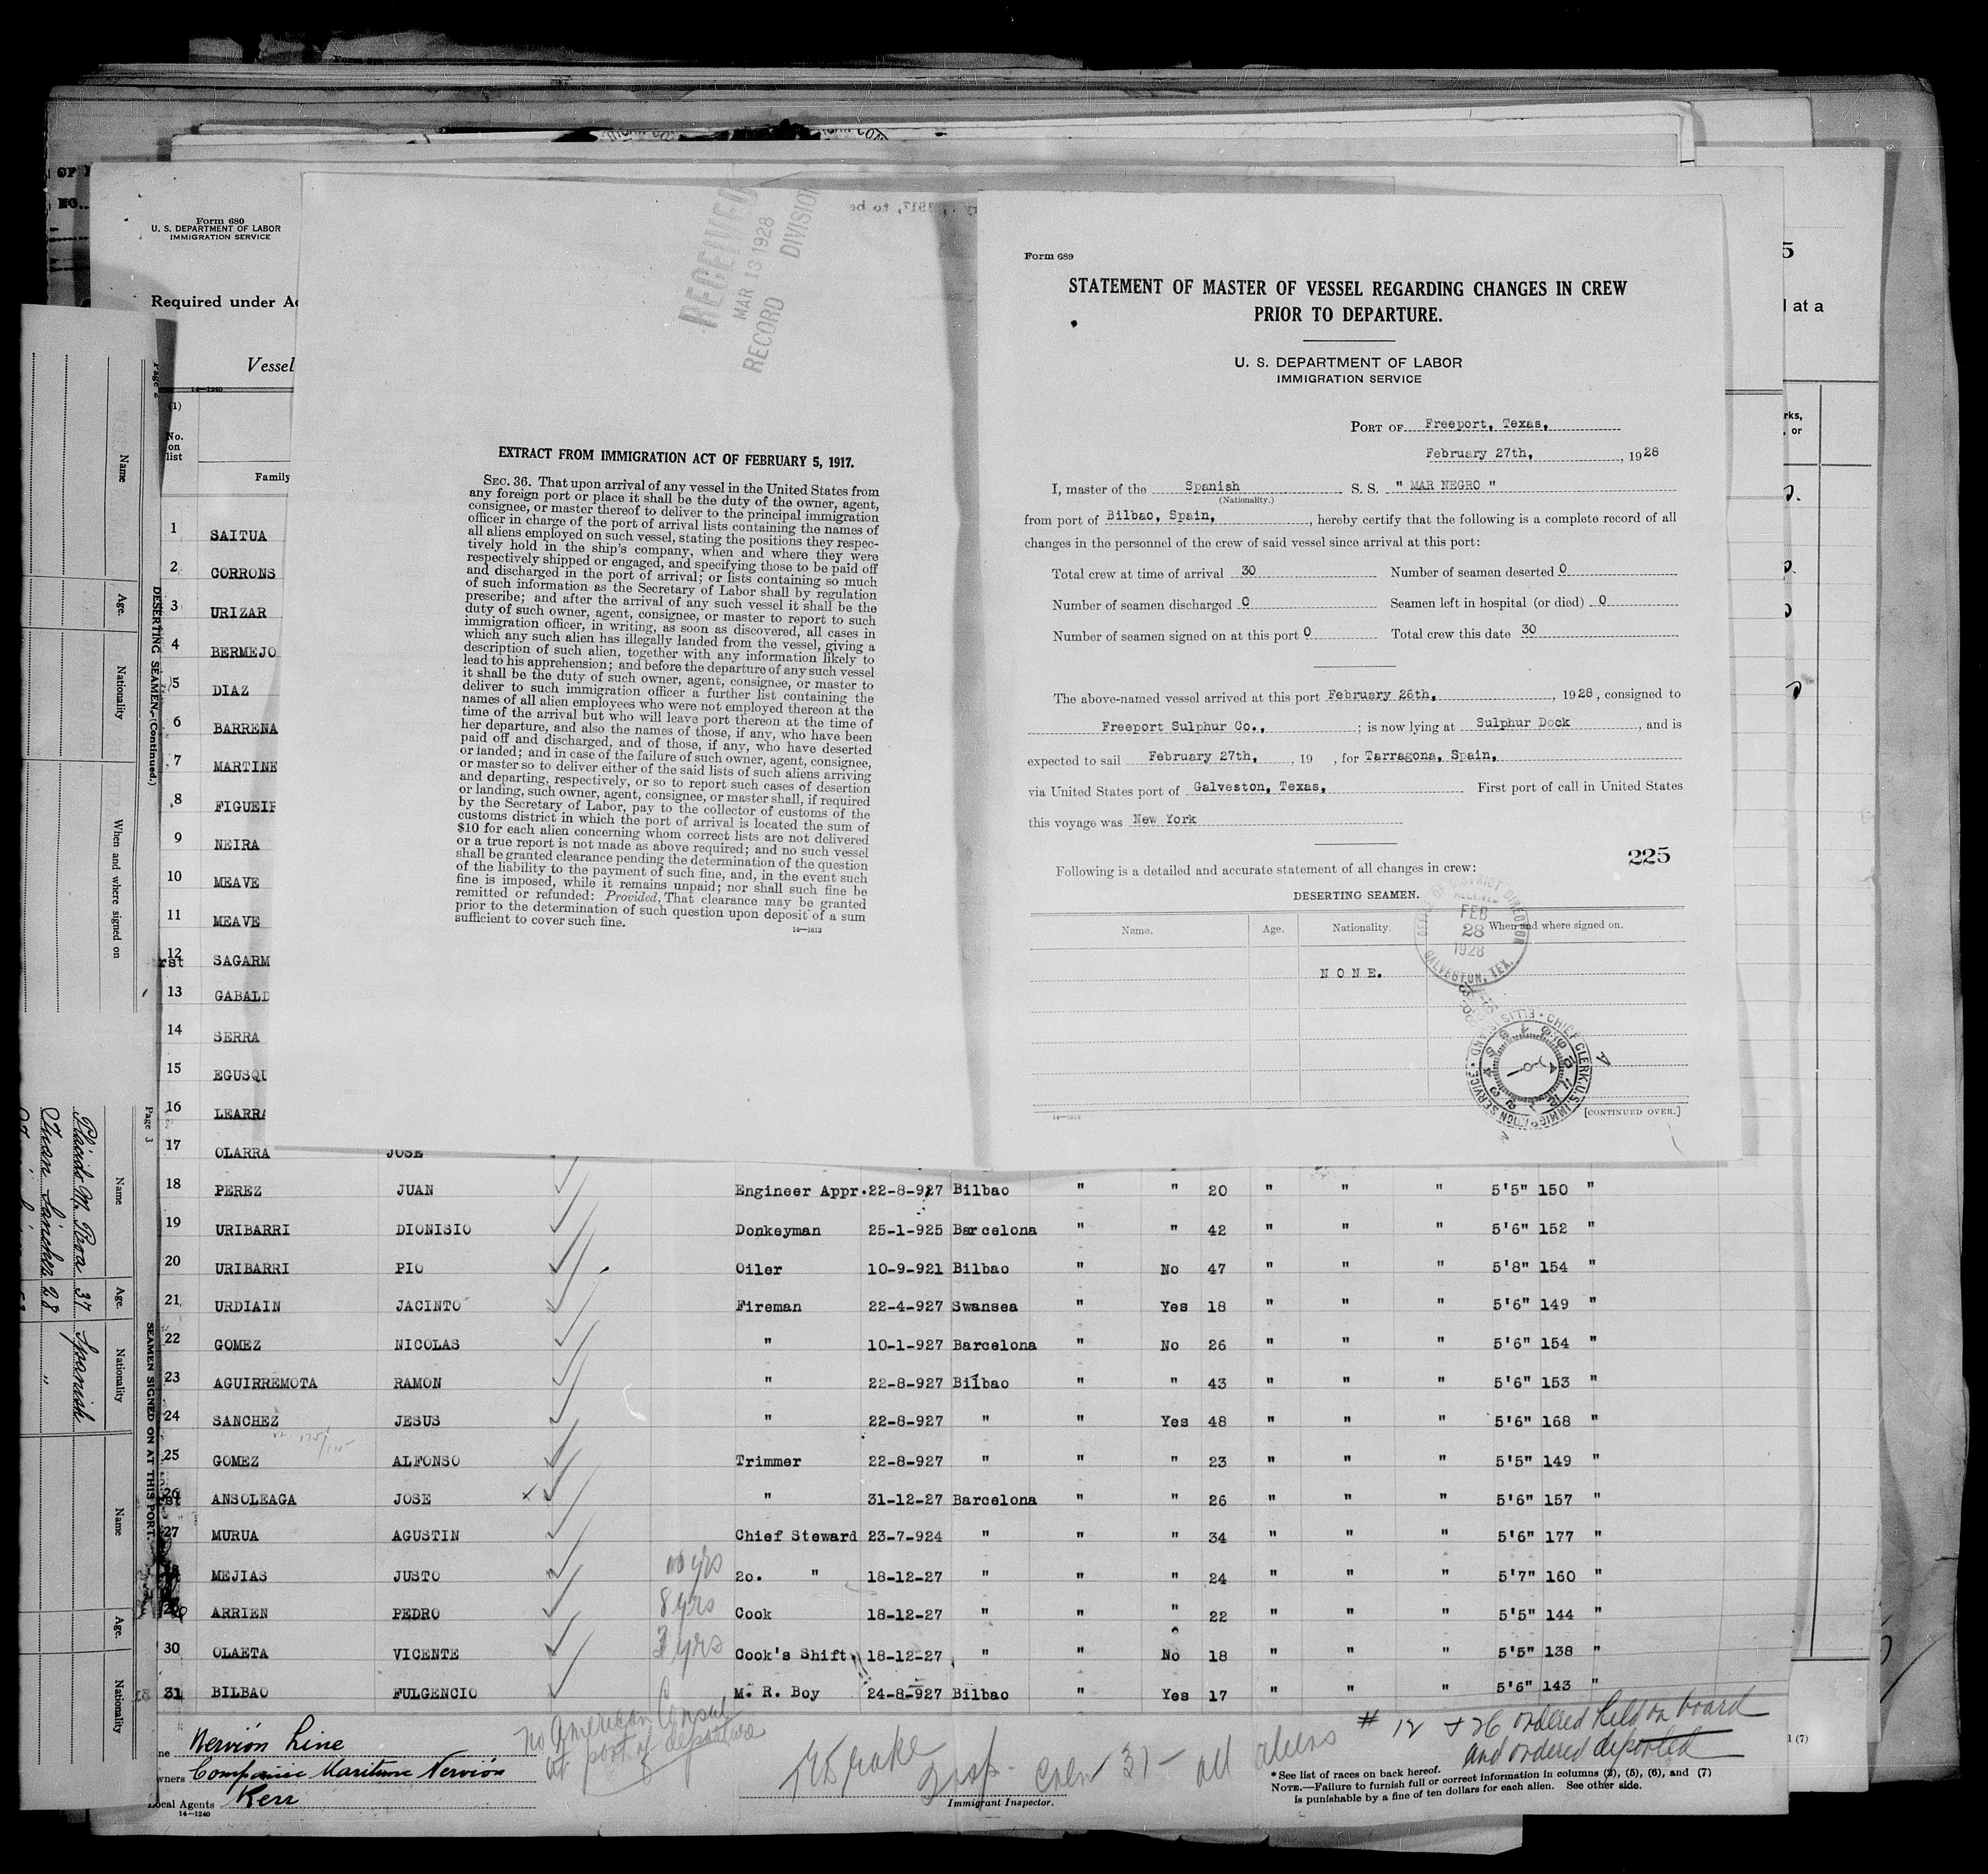 Form 680
U. S. DEPARTMENT OF LABOR
IMMIGRATION SERVICE
Required under Ac
Vessel
14—1240
(1)
No. on list
Family
1 SAITUA
2 CORRONS
3 URIZAR
4 BERMEJO
5 DIAZ
6 BARRENA
7 MARTINE
8 FIGUEIR
9 NEIRA
10 MEAVE
11 MEAVE
12 SAGARM
rst
13 GABALD
14 SERRA
15 EGUSQU
16 LEARRA
17 OLARRA JOSE
18 PEREZ JUAN Engineer Appr. 22-8-927 Bilbao " " 20 " " " 5'5" 150 "
19 URIBARRI DIONISIO Donkeyman 25-1-925 Barcelona " " 42 " " " 5'6" 152 "
20 URIBARRI PIO Oiler 10-9-921 Bilbao " No 47 " " " 5'8" 154 "
21 URDIAIN JACINTO Fireman 22-4-927 Swansea " Yes 18 " " " 5'6" 149 "
22 GOMEZ NICOLAS " 10-1-927 Barcelona " No 26 " " " 5'6" 154 "
23 AGUIRREMOTA RAMON " 22-8-927 Bilbao " " 43 " " " 5'6" 153 "
24 SANCHEZ JESUS " 22-8-927 " " Yes 48 " " " 5'6" 168 "
25 GOMEZ ALFONSO Trimmer 22-8-927 " " " 23 " " " 5'5" 149 "
26 ANSOLEAGA JOSE " 31-12-27 Barcelona " " 26 " " " 5'6" 157 "
27 MURUA AGUSTIN Chief Steward 23-7-924 " " " 34 " " " 5'6" 177 "
MEJIAS JUSTO 10 yrs 2o. " 18-12-27 " " " 24 " " " 5'7" 160 "
ARRIEN PEDRO 8 yrs Cook 18-12-27 " " " 22 " " " 5'5" 144 "
30 OLAETA VICENTE 3 yrs Cook's Shift 18-12-27 " " No 18 " " " 5'5" 138 "
31 BILBAO FULGENCIO M. R. Boy 24-8-927 Bilbao " Yes 17 " " " 5'6" 143 "
Nervión Line
Compañia Maritima Nervión
Local Agents Kerr
14—1240
No American Consul
at port of departure
Immigrant Inspector.
31 – all aliens
# 12 & 26 ordered held on board
and ordered deported
* See list of races on back hereof.
NOTE.—Failure to furnish full or correct information in columns (2), (5), (6), and (7)
is punishable by a fine of ten dollars for each alien. See other side.
RECEIVED
MAR 13 1928
RECORD DIVISION
EXTRACT FROM IMMIGRATION ACT OF FEBRUARY 5, 1917.
SEC. 36. That upon arrival of any vessel in the United States from
any foreign port or place it shall be the duty of the owner, agent,
consignee, or master thereof to deliver to the principal immigration
officer in charge of the port of arrival lists containing the names of
all aliens employed on such vessel, stating the positions they respec-
tively hold in the ship's company, when and where they were
respectively shipped or engaged, and specifying those to be paid off
and discharged in the port of arrival; or lists containing so much
of such information as the Secretary of Labor shall by regulation
prescribe; and after the arrival of any such vessel it shall be the
duty of such owner, agent, consignee, or master to report to such
immigration officer, in writing, as soon as discovered, all cases in
which any such alien has illegally landed from the vessel, giving a
description of such alien, together with any information likely to
lead to his apprehension; and before the departure of any such vessel
it shall be the duty of such owner, agent, consignee, or master to
deliver to such immigration officer a further list containing the
names of all alien employees who were not employed thereon at the
time of the arrival but who will leave port thereon at the time of
her departure, and also the names of those, if any, who have been
paid off and discharged, and of those, if any, who have deserted
or landed; and in case of the failure of such owner, agent, consignee,
or master so to deliver either of the said lists of such aliens arriving
and departing, respectively, or so to report such cases of desertion
or landing, such owner, agent, consignee, or master shall, if required
by the Secretary of Labor, pay to the collector of customs of the
customs district in which the port of arrival is located the sum of
$10 for each alien concerning whom correct lists are not delivered
or a true report is not made as above required; and no such vessel
shall be granted clearance pending the determination of the question
of the liability to the payment of such fine, and, in the event such
fine is imposed, while it remains unpaid; nor shall such fine be
remitted or refunded: Provided, That clearance may be granted
prior to the determination of such question upon deposit of a sum
sufficient to cover such fine.
14—1613
Form 689
STATEMENT OF MASTER OF VESSEL REGARDING CHANGES IN CREW
PRIOR TO DEPARTURE.
U. S. DEPARTMENT OF LABOR
IMMIGRATION SERVICE
PORT OF Freeport, Texas,
February 27th, , 1928
I, master of the Spanish S. S. " MAR NEGRO "
(Nationality.)
from port of Bilbao, Spain, , hereby certify that the following is a complete record of all
changes in the personnel of the crew of said vessel since arrival at this port:
Total crew at time of arrival 30 Number of seamen deserted 0
Number of seamen discharged 0 Seamen left in hospital (or died) 0
Number of seamen signed on at this port 0 Total crew this date 30
The above-named vessel arrived at this port February 26th, , 1928, consigned to
Freeport Sulphur Co., ; is now lying at Sulphur Dock , and is
expected to sail February 27th, , 19 , for Tarragona, Spain,
via United States port of Galveston, Texas, First port of call in United States
this voyage was New York
225
Following is a detailed and accurate statement of all changes in crew:
DESERTING SEAMEN.
Name. Age. Nationality. When and where signed on.
NONE.
OFFICE OF DISTRICT DIRECTOR
RECEIVED
FEB 28 1928
GALVESTON, TEX.
CHIEF CLERK, U.S. IMMIGRATION SERVICE · ELLIS ISLAND
14—1613
[CONTINUED OVER.]
Page 2
DESERTING SEAMEN.—(Continued.)
Name Age. Nationality When and where signed on
Page 3
SEAMEN SIGNED ON AT THIS PORT.
Name Age. Nationality Name Age. Nationality
Placido M. Roa 37 Spanish
Juan Sanchez 28 "